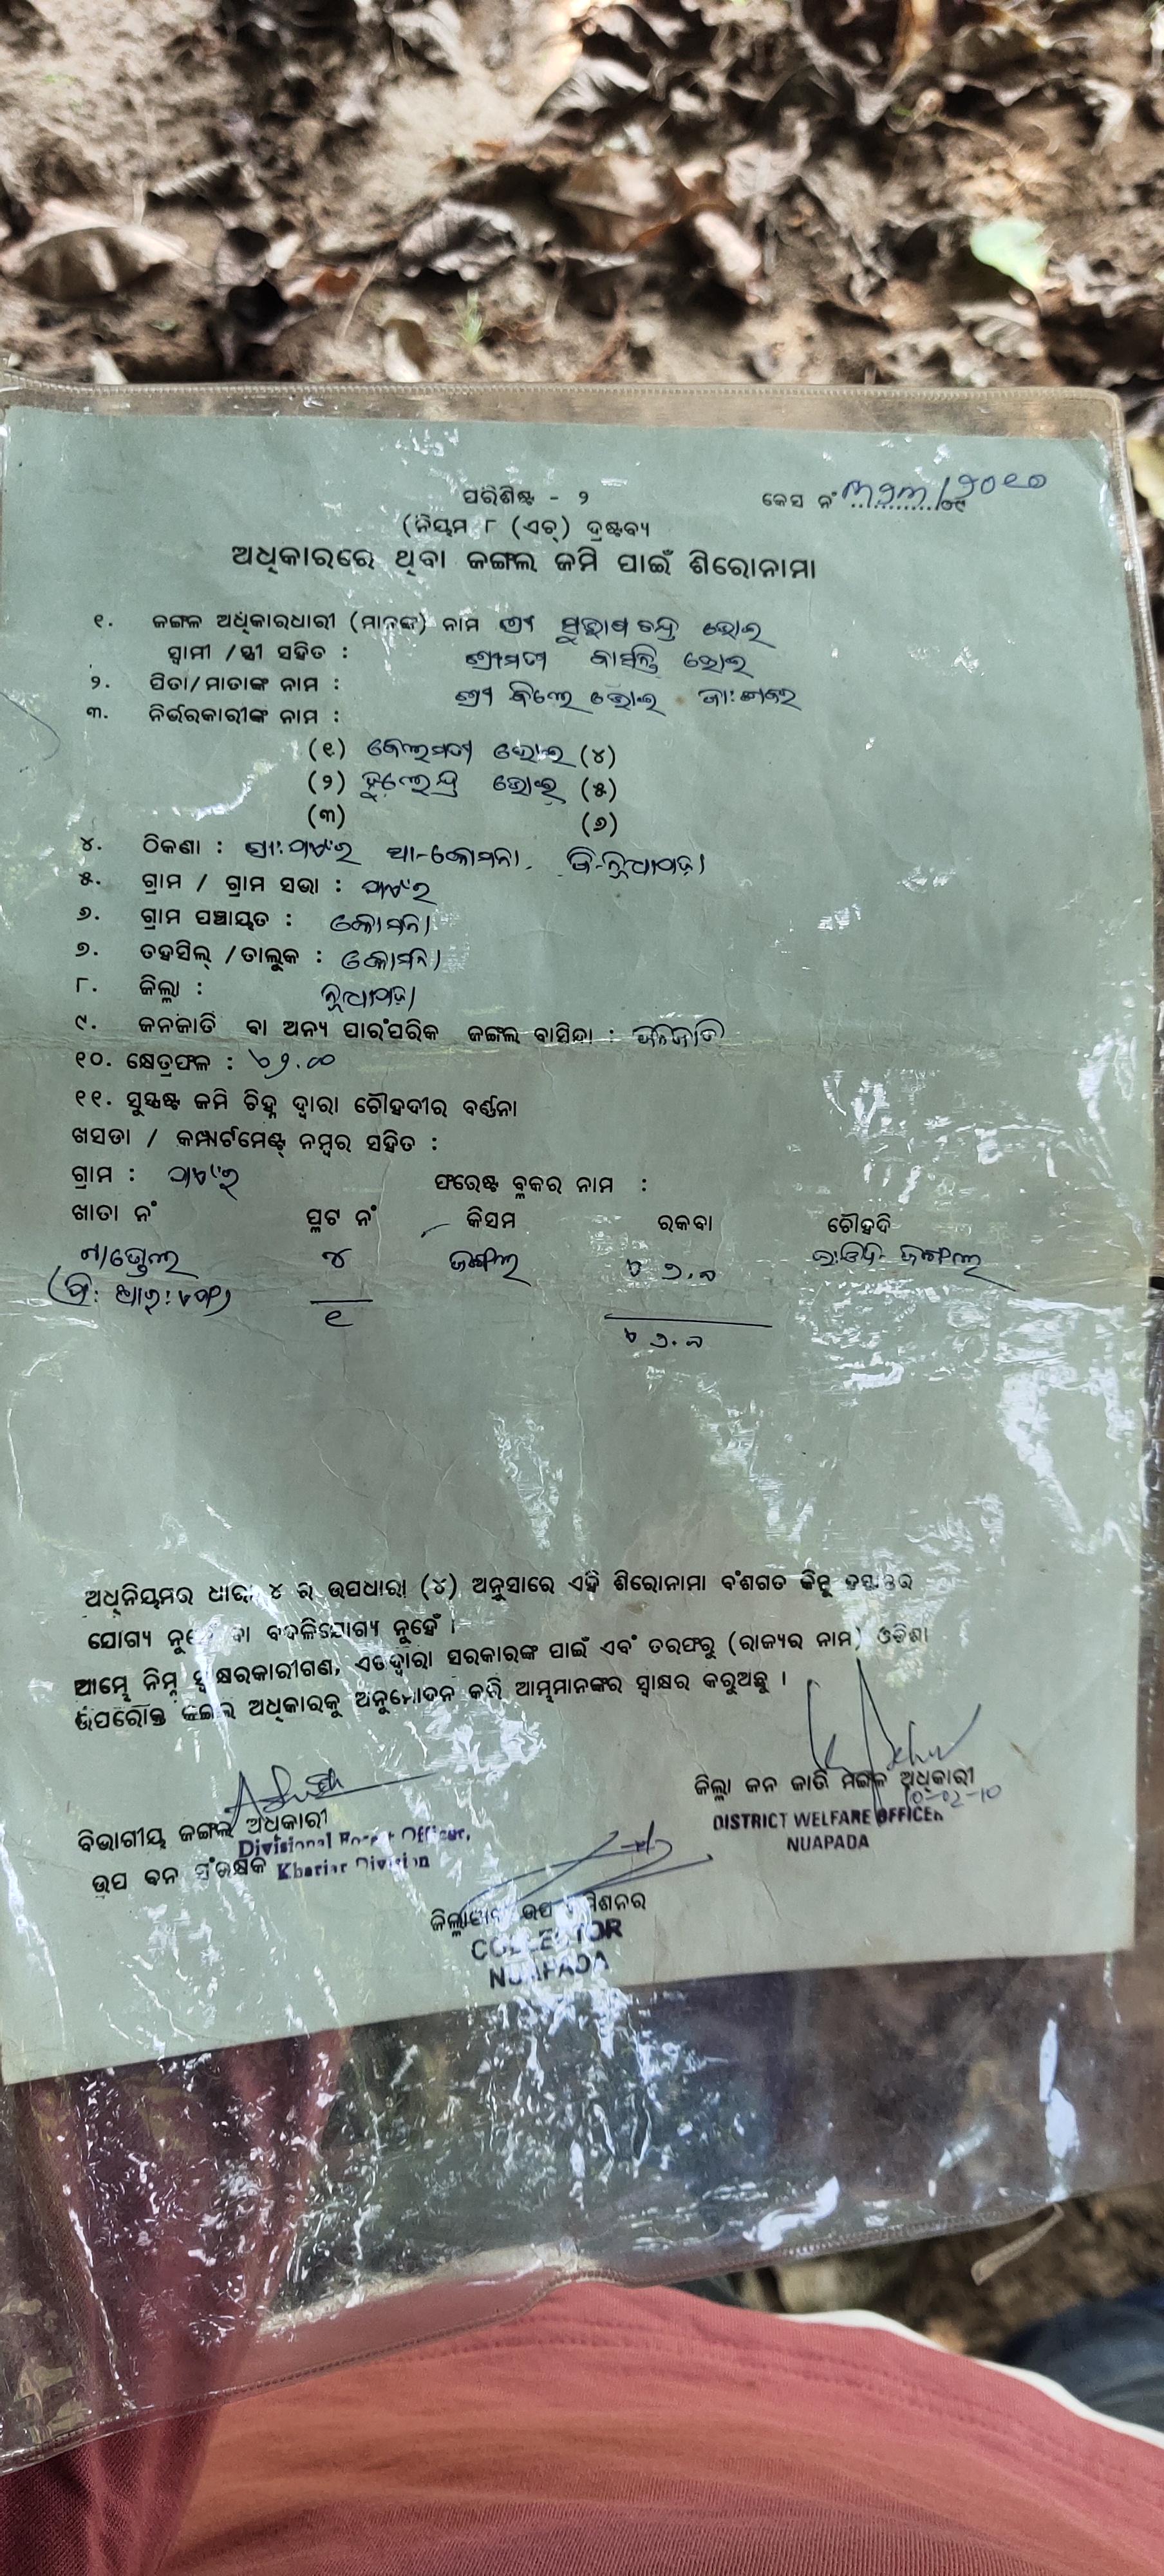 ପରିଶିଷ୍ଟ - ୨
କେସ ନଂ ୩୨୩/୨୦୧୦
(ନିୟମ ୮ (ଏଚ୍) ଦ୍ରଷ୍ଟବ୍ୟ
ଅଧିକାରରେ ଥିବା ଜଙ୍ଗଲ ଜମି ପାଇଁ ଶିରୋନାମା
୧. ଜଙ୍ଗଲ ଅଧିକାରଧାରୀ (ମାନଙ୍କ) ନାମ ଶ୍ରୀ ସୁବାଷ ଚନ୍ଦ୍ର ଭୋଇ
ସ୍ଵାମୀ /ସ୍ତ୍ରୀ ସହିତ : ଶ୍ରୀମତୀ ବାସନ୍ତି ଭୋଇ
୨. ପିତା/ମାତାଙ୍କ ନାମ : ଶ୍ରୀ ଭୋଇ ଜା:
୩. ନିର୍ଭରକାରୀଙ୍କ ନାମ :
(୧) ଭୋଇ (୪)
(୨) ଭୋଇ (୫)
(୩) (୬)
୪. ଠିକଣା : ଆ-କୋମନା. ଜି-ନୂଆପଡ଼ା
୫. ଗ୍ରାମ / ଗ୍ରାମ ସଭା :
୬. ଗ୍ରାମ ପଞ୍ଚାୟତ : କୋମନା
୭. ତହସିଲ୍ /ତାଲୁକ : କୋମନା
୮. ଜିଲ୍ଲା : ନୂଆପଡ଼ା
୯. ଜନଜାତି ବା ଅନ୍ୟ ପାରଂପରିକ ଜଙ୍ଗଲ ବାସିନ୍ଦା : ଜନଜାତି
୧୦. କ୍ଷେତ୍ରଫଳ :
୧୧. ସୁସ୍ପଷ୍ଟ ଜମି ଚିହ୍ନ ଦ୍ଵାରା ଚୌହଦୀର ବର୍ଣ୍ଣନା
ଖସଡା / କମ୍ପାର୍ଟମେଣ୍ଟ୍ ନମ୍ବର ସହିତ :
ଗ୍ରାମ : ଫରେଷ୍ଟ ବ୍ଲକର ନାମ :
ଖାତା ନଂ ପ୍ଲଟ ନଂ କିସମ ରକବା ଚୌହଦି
୪ ଜଙ୍ଗଲ ଜଙ୍ଗଲ
୧
ଅଧିନିୟମର ଧାରା ୪ ର ଉପଧାରା (୪) ଅନୁସାରେ ଏହି ଶିରୋନାମା ବଂଶଗତ କିନ୍ତୁ ହସ୍ତାନ୍ତର
ଯୋଗ୍ୟ ନୁହେଁ ବା ବଦଳିଯୋଗ୍ୟ ନୁହେଁ ।
ଆମ୍ଭେ ନିମ୍ନ ସ୍ଵାକ୍ଷରକାରୀଗଣ, ଏତଦ୍ଵାରା ସରକାରଙ୍କ ପାଇଁ ଏବଂ ତରଫରୁ (ରାଜ୍ୟର ନାମ) ଓଡିଶା
ଉପରୋକ୍ତ ଜଙ୍ଗଲ ଅଧିକାରକୁ ଅନୁମୋଦନ କରି ଆମ୍ଭମାନଙ୍କର ସ୍ଵାକ୍ଷର କରୁଅଛୁ ।
ଜିଲ୍ଲା ଜନ ଜାତି ମଙ୍ଗଳ ଅଧିକାରୀ
10-02-10
DISTRICT WELFARE OFFICER
NUAPADA
ବିଭାଗୀୟ ଜଙ୍ଗଲ ଅଧିକାରୀ
Divisional Forest Officer,
ଉପ ବନ ସଂରକ୍ଷକ Khariar Division
ଜିଲ୍ଲାପାଳ ଉପ କମିଶନର
COLLECTOR
NUAPADA